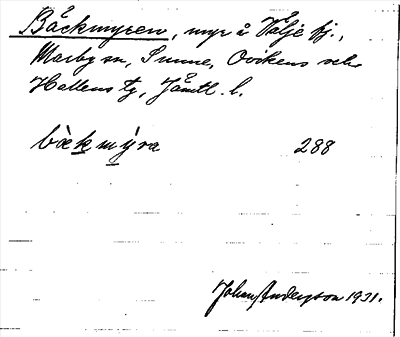 Bäckmyren, myr å Välje fj.,
Marby sn, Sunne, Ovikens och
Hallens tg, Jämtl. l.
bàckmýra 288
Johan Anderson 1931.